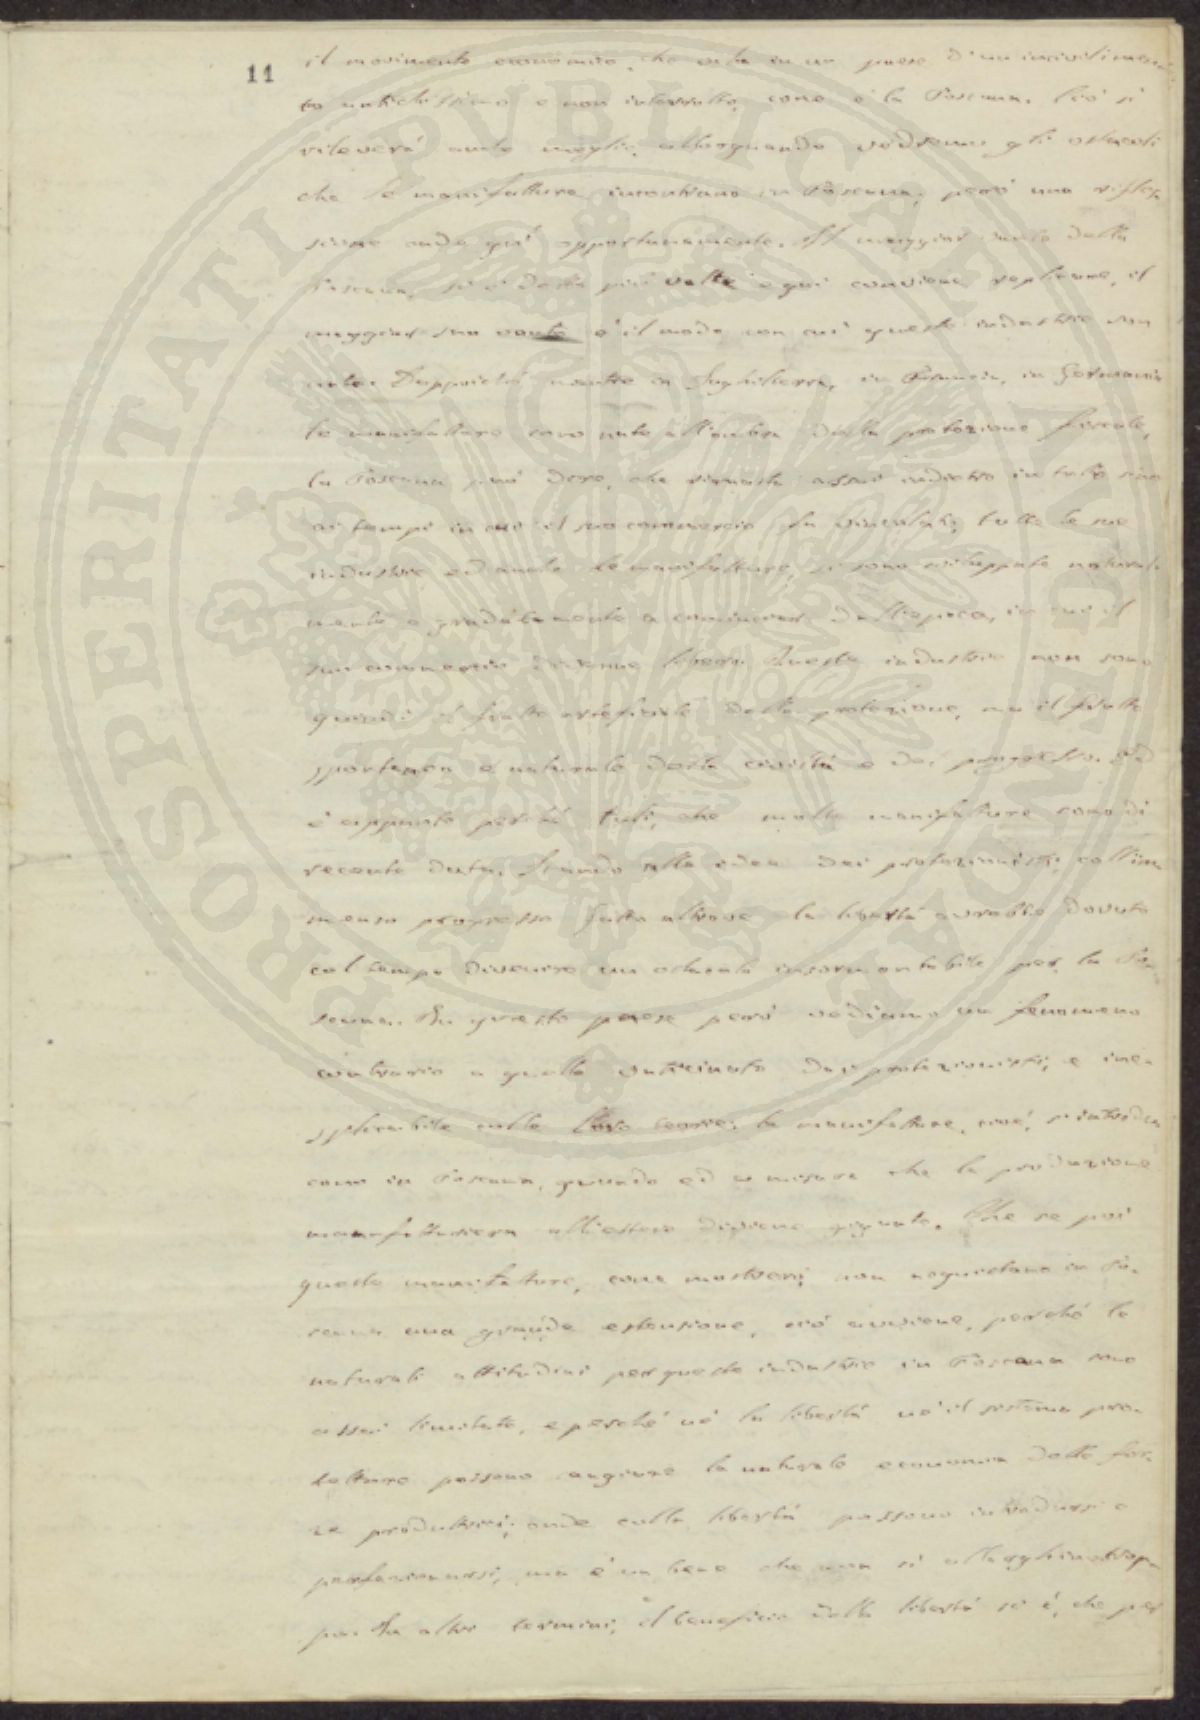 11
il movimento economico, che in un paese d'un incivilimen-
to antichissimo e non interrotto, come è la Toscana. Ciò si
rileverà anche meglio, allorquando vedremo gli ostacoli
che le manifatture incontrano in Toscana, però una rifles-
sione cade quì opportunamente. Il maggior vanto della
Toscana, si è detto più volte e quì conviene replicare, il
maggior suo vanto è il modo con cui queste industrie son
nate. Dappoichè mentre in Inghilterra, in Francia, in Germania
le manifatture sono nate all'ombra della protezione fiscale,
la Toscana può dire, che rimasta assai indietro in tutto sino
ai tempi in cui il suo commercio fu vincolato, tutte le sue
industrie ed anche le manifatture, si sono sviluppate natural-
mente e gradatamente a cominciar dall'epoca, in cui il
suo commercio divenne libero. Queste industrie non sono
quindi il frutto artificiale della protezione, ma il frutto
spontaneo e naturale della civiltà e del progresso. Ed
è appunto perchè tali, che molte manifatture sono di
recente data. Stando alle idee dei protezionisti, coll'im-
menso progresso fatto altrove la libertà avrebbe dovuto
col tempo divenire un ostacolo insormontabile per la To-
scana. In questo paese però vediamo un fenomeno
contrario a quello vaticinato dai protezionisti, e ine-
splicabile colle loro teorie: le manifatture, cioè, s'introdu-
cono in Toscana, quando ed a misura che la produzione
manifatturiera all'estero diviene gigante. Che se poi
queste manifatture, come mostrerò, non acquistano in To-
scana una grande estensione, ciò avviene, perchè le
naturali attitudini per queste industrie in Toscana sono
assai limitate, e perchè nè la libertà nè il sistema pro-
tettore possono cangiare la naturale economia delle for-
ze produttrici; onde colla libertà possono introdursi e
perfezionarsi, ma è un bene che non si allarghino trop-
po. In altri termini, il beneficio della libertà si è, che per
PROSPERITATI PVBLICAE AVGENDAE